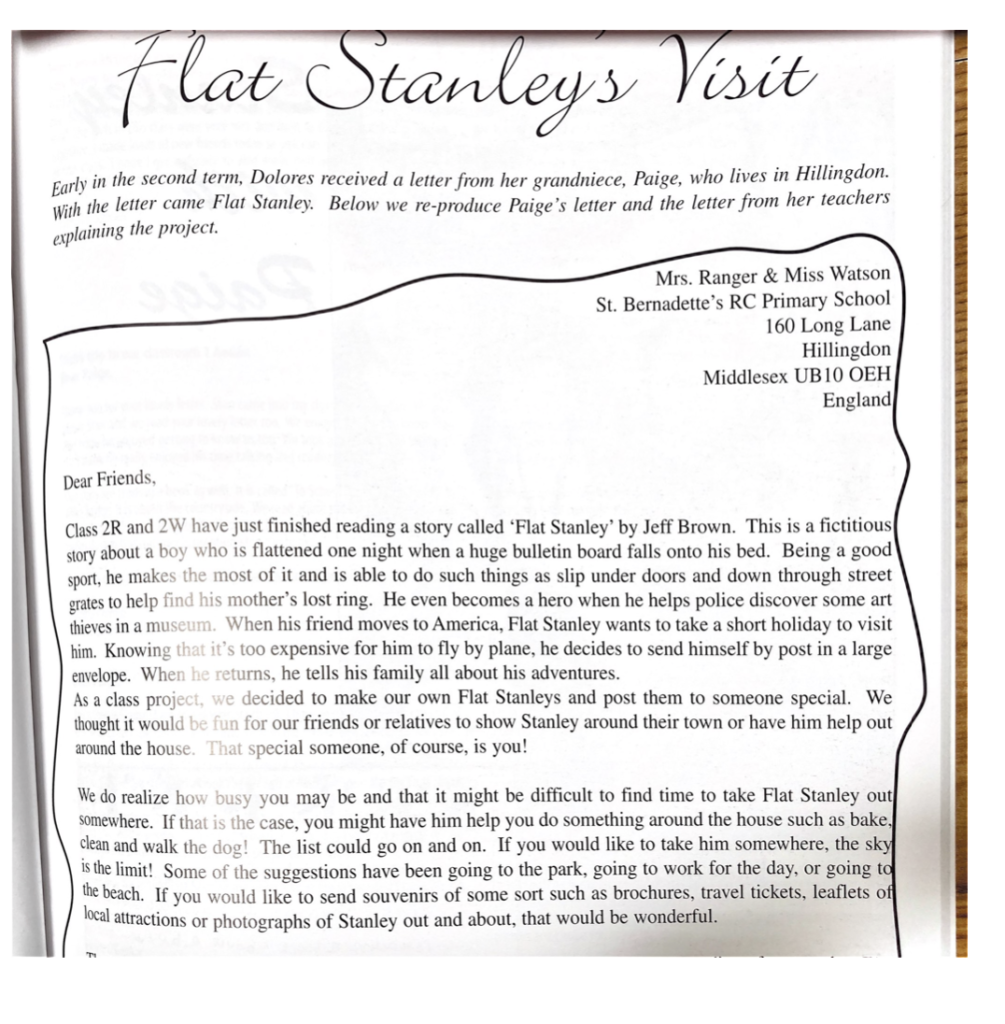 Flat Stanley's Visit
Early in the second term, Dolores received a letter from her grandniece, Paige, who lives in Hillingdon.
With the letter came Flat Stanley. Below we re-produce Paige's letter and the letter from her teachers
explaining the project.
Mrs. Ranger & Miss Watson
St. Bernadette's RC Primary School
160 Long Lane
Hillingdon
Middlesex UB10 OEH
England
Dear Friends,
Class 2R and 2W have just finished reading a story called 'Flat Stanley' by Jeff Brown. This is a fictitious
story about a boy who is flattened one night when a huge bulletin board falls onto his bed. Being a good
sport, he makes the most of it and is able to do such things as slip under doors and down through street
grates to help find his mother's lost ring. He even becomes a hero when he helps police discover some art
thieves in a museum. When his friend moves to America, Flat Stanley wants to take a short holiday to visit
him. Knowing that it's too expensive for him to fly by plane, he decides to send himself by post in a large
envelope. When he returns, he tells his family all about his adventures.
As a class project, we decided to make our own Flat Stanleys and post them to someone special. We
thought it would be fun for our friends or relatives to show Stanley around their town or have him help out
around the house. That special someone, of course, is you!
We do realize how busy you may be and that it might be difficult to find time to take Flat Stanley out
somewhere. If that is the case, you might have him help you do something around the house such as bake,
clean and walk the dog! The list could go on and on. If you would like to take him somewhere, the sky
is the limit! Some of the suggestions have been going to the park, going to work for the day, or going to
the beach. If you would like to send souvenirs of some sort such as brochures, travel tickets, leaflets of
local attractions or photographs of Stanley out and about, that would be wonderful.